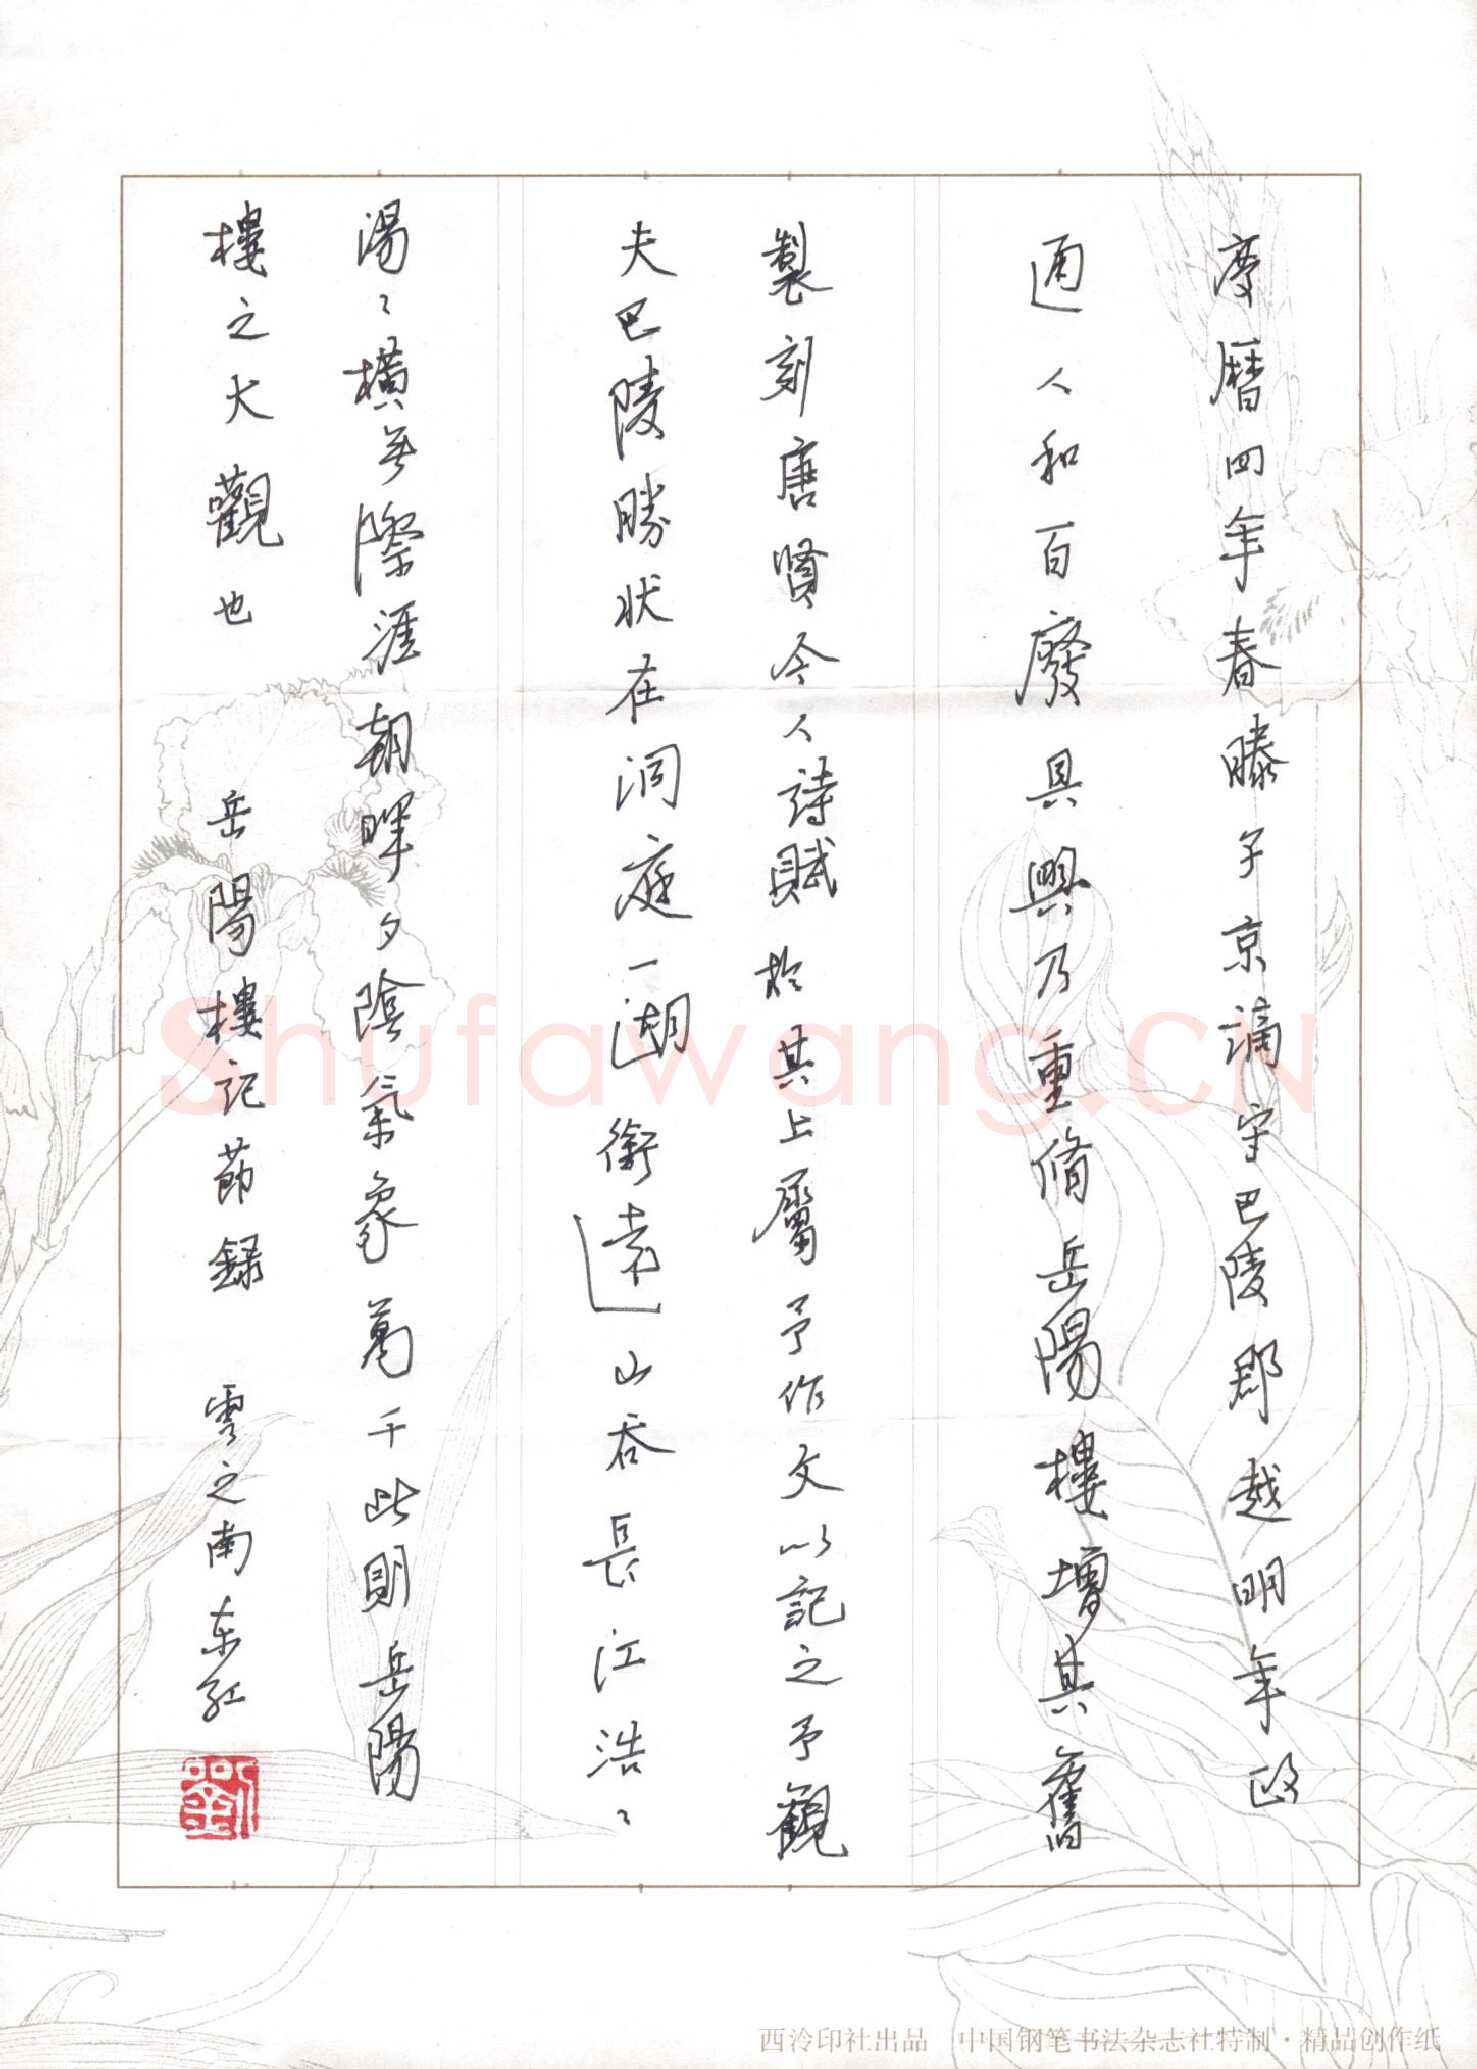 慶曆四年春滕子京謫守巴陵郡越明年政
通人和百廢具興乃重脩岳陽樓增其舊
製刻唐賢今人詩賦於其上屬予作文以記之予觀
夫巴陵勝狀在洞庭一湖銜遠山吞長江浩〻
湯〻橫無際涯朝暉夕陰氣象萬千此則岳陽
樓之大觀也 岳陽樓記節錄 雲之南东红
劉
Shufawang.CN
西泠印社出品 中国钢笔书法杂志社特制·精品创作纸